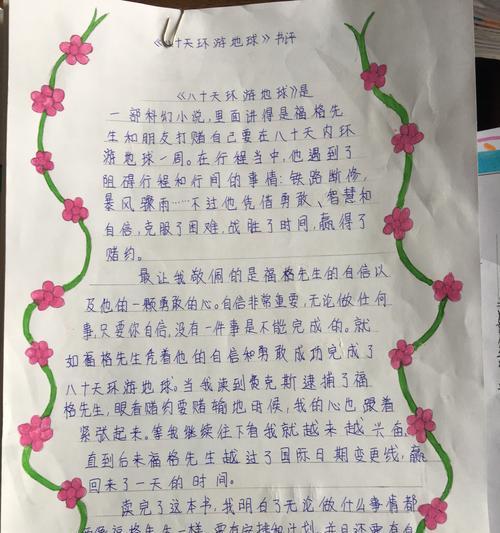 《八十天环游地球》书评
《八十天环游地球》是
一部科幻小说,里面讲得是福格先
生和朋友打赌自己要在八十天内环
游地球一周。在行程当中,他遇到了
阻碍行程和行间的事情:铁路断修,
暴风骤雨……不过他凭借勇敢、智慧和
自信,克服了困难,战胜了时间,赢得了
赌约。
最让我敬佩的是福格先生的自信以
及他的一颗勇敢的心。自信非常重要,无论做任何
事,只要你自信,没有一件事是不能完成的。就
如福格先生凭着他的自信和勇敢成功完成了
八十天环游地球。当我读到费克斯逮捕了福
格先生,眼看赌约要赌输地时候,我的心也跟着
紧张起来。等我继续往下看我就越来越兴奋,
直到后来福格先生越过了国际日期变更线,赢
回来了一天的时间。
读完了这本书,我明白了无论做什么事情都
要像福格先生一样,要有安排和计划,并且还要有自